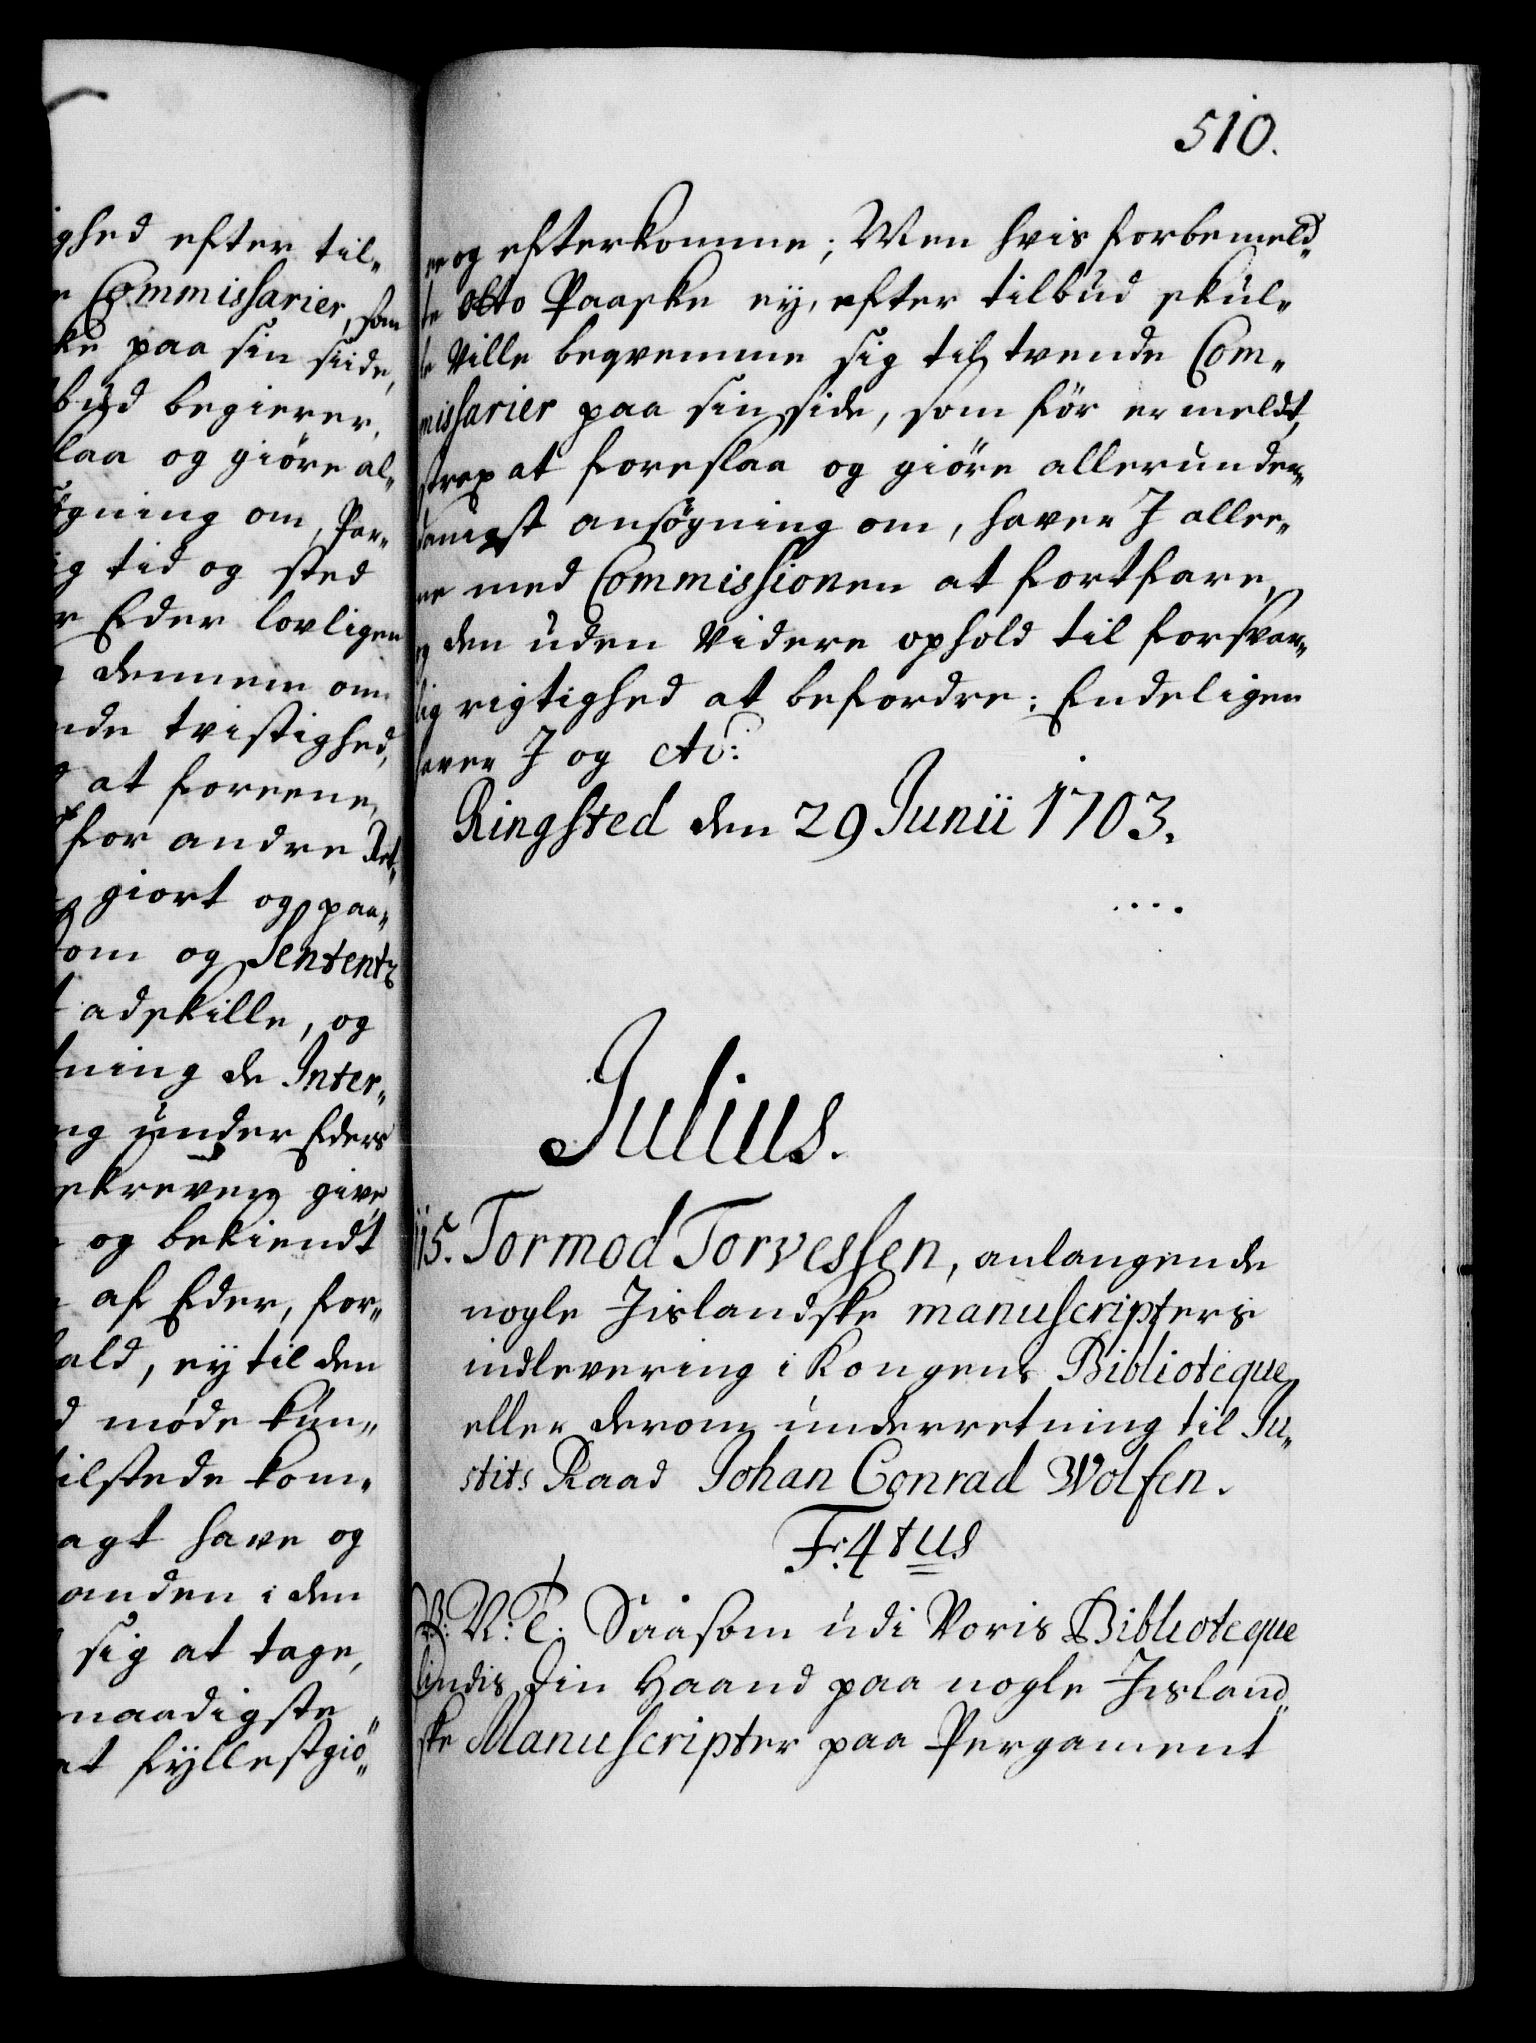 ghed efter til„
Commissarier, som
ke paa sin siide,
bud begierer,
laa og giöre al„
ögning om, Par„
ig tid og sted
r Eder lovligen
dennem om
nde tvistighed,
at foreene,
for andre Ret„
giort og paa„
om og Sententz
adskille, og
ning de Inter„
ng under Eders
skreven give
og bekiendt
af Eder, for„
ald, ey til den
d møde kun„
ilstede kom„
agt have og
anden i den
sig at tage,
naadigste
at fyllestgiö„
510.
re og efterkomme; Men hvis forbemeld„
te Otto Paaske ey, efter tilbud skul„
le Ville beqvemme sig til tvende Com„
missarier paa sin side, som för er meldt,
strax at foreslaa og giöre allerunder„
danigst ansøgning om, haver J allee„
ne med Commissionen at fortfare,
og den uden Videre ophold til forsvar„
lig rigtighed at befordre: Endeligen
haver J og etc:
Ringsted den 29 Junii 1703.
....
Julius.
115. Tormod Torvessen, anlangende
nogle Jislandske manuscripters
indlevering i Kongens Biblioteque
eller derom underretning til Ju„
stits Raad Johan Conrad Wolfen.
F: 4tus
V: N: T. Saasom udi Voris Biblioteque
findis Din Haand paa nogle Jisland„
ske Manuscripter paa Pergament